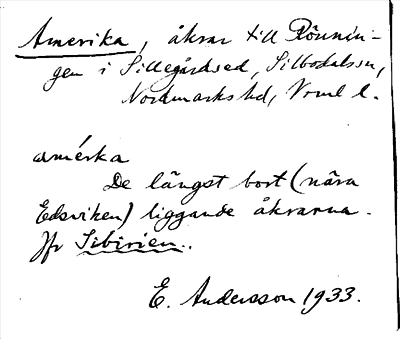 Amerika, åkrar till Rönnin-
gen i Sillegårdsed, Silbodalssn,
Nordmarks hd, Vrml l.
amérka
De längst bort (nära
Edsviken) liggande åkrarna.
Jfr Sibirien.
E. Andersson 1933.